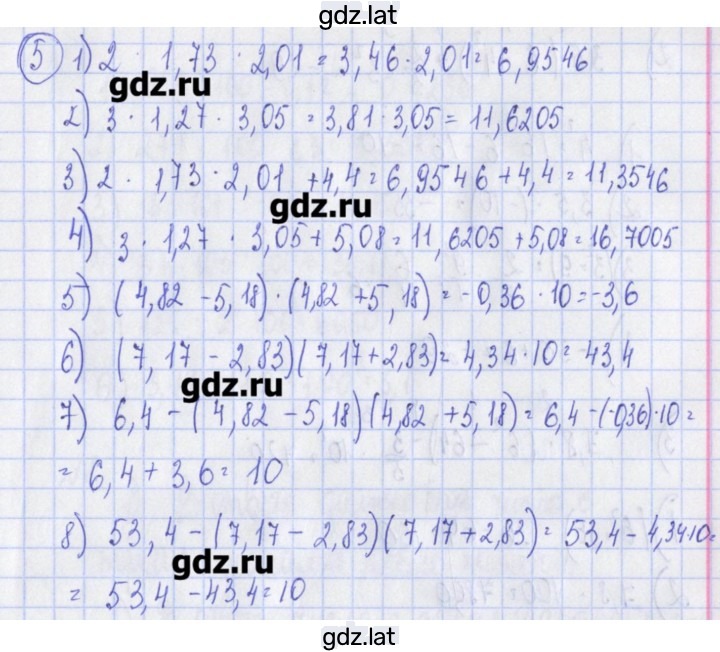 gdz.lat
5 1) 2 · 1,73 · 2,01 = 3,46 · 2,01 = 6,9546
gdz.ru
2) 3 · 1,27 · 3,05 = 3,81 · 3,05 = 11,6205
3) 2 · 1,73 · 2,01 + 4,4 = 6,9546 + 4,4 = 11,3546
gdz.ru
4) 3 · 1,27 · 3,05 + 5,08 = 11,6205 + 5,08 = 16,7005
5) (4,82 - 5,18) · (4,82 + 5,18) = -0,36 · 10 = -3,6
6) (7,17 - 2,83)(7,17 + 2,83) = 4,34 · 10 = 43,4
gdz.ru
7) 6,4 - (4,82 - 5,18)(4,82 + 5,18) = 6,4 - (-0,36) · 10 =
= 6,4 + 3,6 = 10
8) 53,4 - (7,17 - 2,83)(7,17 + 2,83) = 53,4 - 4,34·10 =
gdz.ru
= 53,4 - 43,4 = 10
gdz.lat